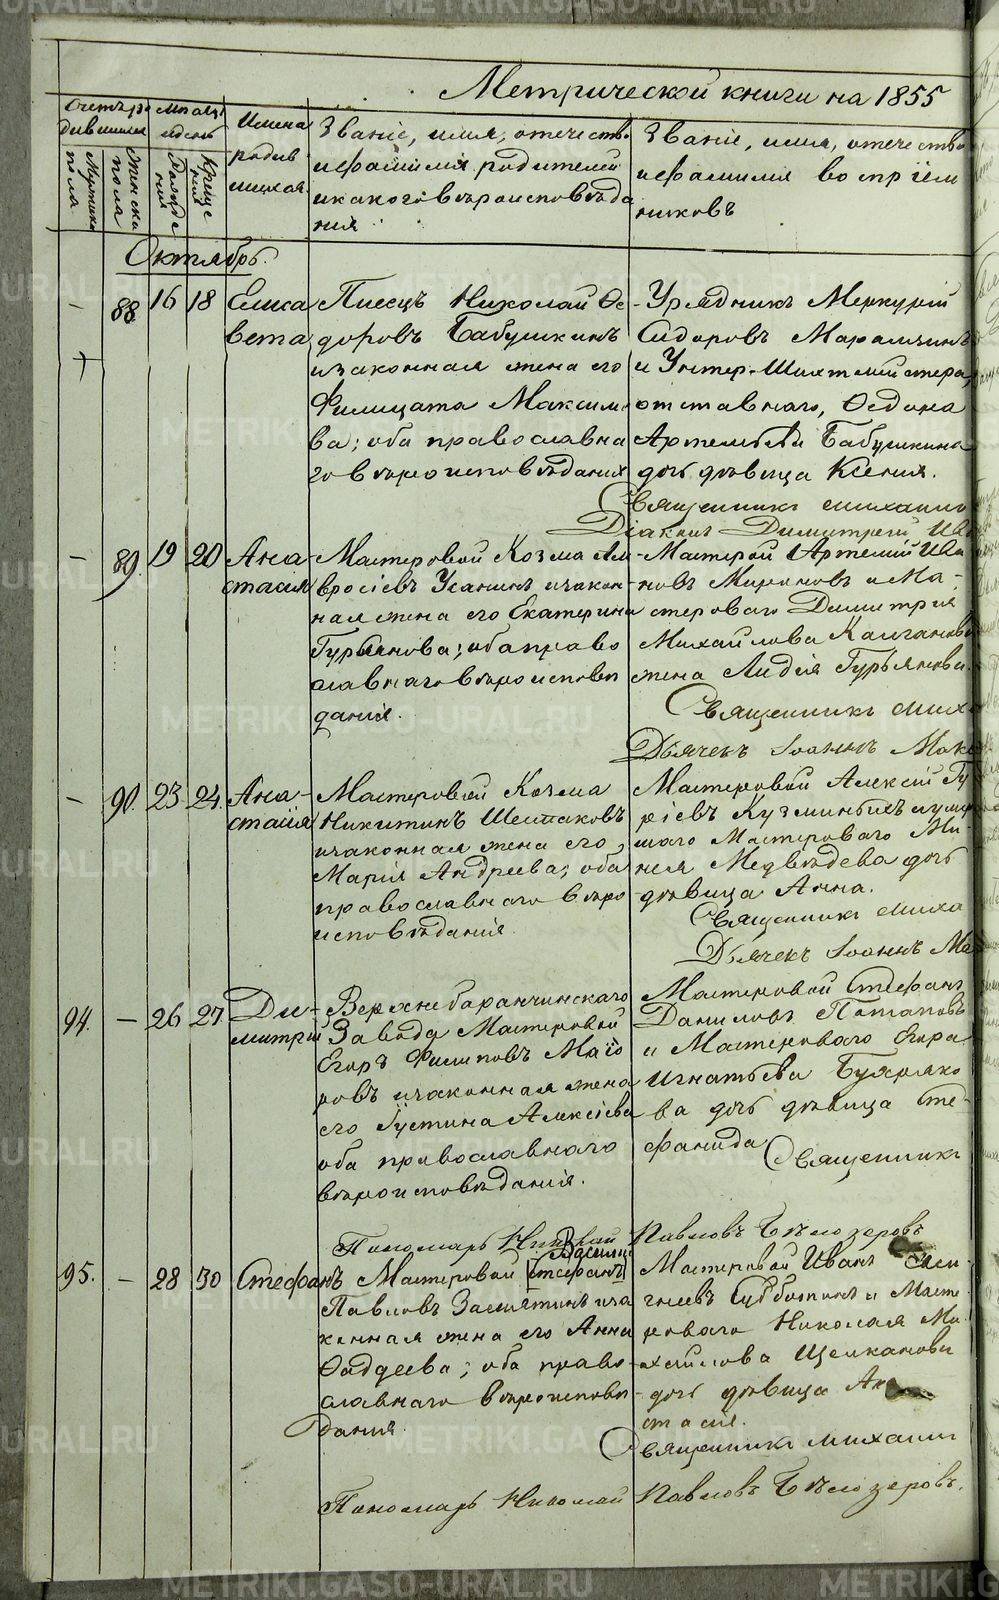 Метрической книги на 1855
Счетъ ро
дившихся
Мужска
пола
Женска
пола
Месяцъ
и день
Рожде
нія
Креще
нія
Имена
родив
шихся.
Званіе, имя, отечество
и фамилія родителей
и какого вѣроисповѣда
нія
Званіе, имя, отечество
и фамилія воспріем
никовъ
Октябрь.
88 16 18 Елиса
вета
Писецъ Николай Ѳе-
доровъ Бабушкинъ
и законная жена его
Филицата Максимо
ва; оба православна
го вѣроисповѣданія
Урядникъ Меркурій
Сидоровъ Маралчинъ
и Унтер-Шихтмейстера
отставнаго, Ѳедона
Артемьева Бабушкина
дочь дѣвица Ксенія.
Священникъ Михаилъ
Діаконъ Димитрій Ива
89. 19 20 Ана-
стасія
Мастеровой Козма Ам-
вросіевъ Усанинъ и закон-
ная жена его Екатерина
Гурьянова; оба право
славнаго вѣроисповѣ
данія.
Мастерой Артемій Ива
новъ Мироновъ и Ма-
стероваго Димитрія
Михайлова Калганова
жена Лидія Гурьянова.
Священникъ Миха
Дьячекъ Іоаннъ Мака
90. 23 24. Ана-
стасія
Мастеровой Козма
Никитинъ Шестаковъ
и законная жена его,
Марія Андреева; оба
православнаго вѣро
исповѣданія
Мастеровой Алексій Гу
ріевъ Кузминыхъ и умер
шаго Мастероваго Ми-
нея Медвѣдева дочь
дѣвица Анна.
Священникъ Миха
Дьячекъ Іоаннъ Ма
94. — 26 27. Ди-
митрій
Верхнебаранчинскаго
Завода Мастеровой
Егоръ Филиповъ Маіо
ровъ и законная жена
его Іустина Алексіева
оба православнаго
вѣроисповѣданія.
Мастеровой Стефанъ
Даниловъ Потаповъ
и Мастероваго Егора
Игнатьева Буярако
ва дочь дѣвица Сте-
фанида
Священникъ
Пономарь Николай Павловъ Бѣлозеровъ
95. — 28 30 Стефанъ
Василій
Мастеровой [Стефанъ]
Павловъ Замятинъ и за
конная жена его Анна
Ѳаддеева; оба право-
славнаго вѣроисповѣ
данія.
Мастеровой Иванъ
гѣевъ Субботинъ и Масте-
роваго Николая Ми-
хайлова Щелканова
дочь дѣвица Ана
стасія.
Священникъ Михаилъ
Пономарь Николай Павловъ Бѣлозеровъ.
METRIKI.GASO-URAL.RU